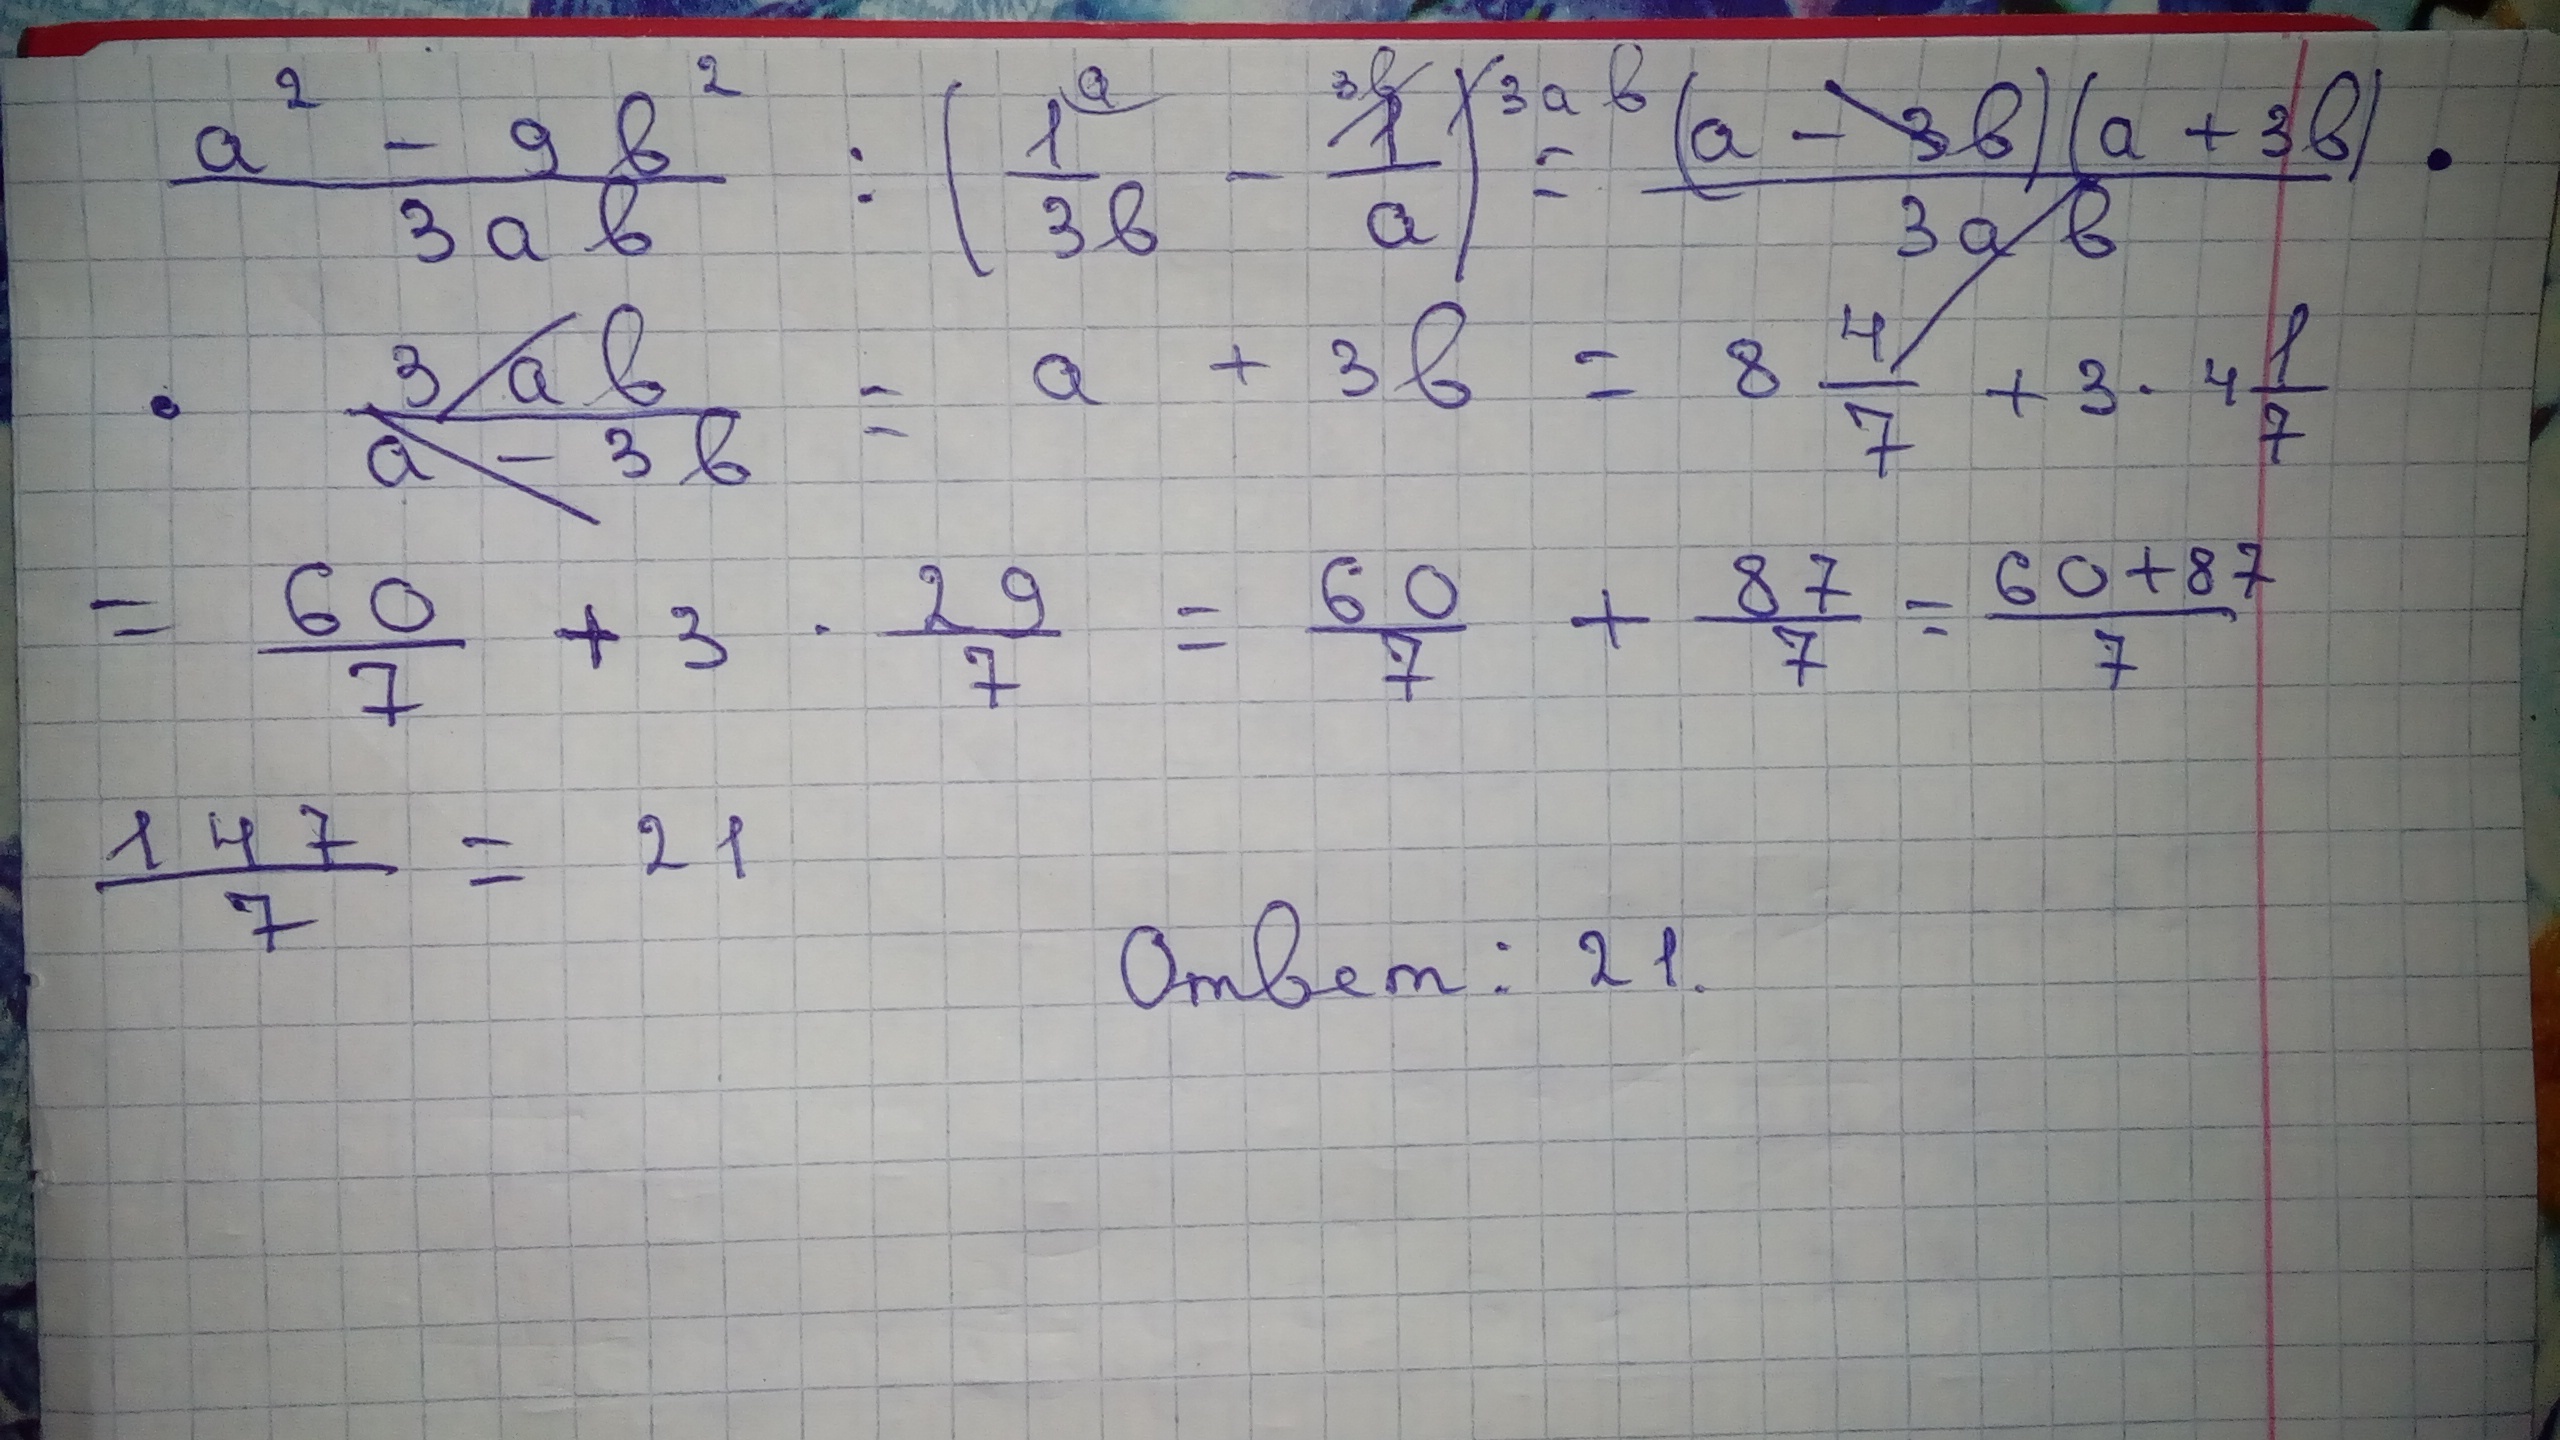 a² - 9b² / 3ab : (1^a / 3b - 1^3b / a)^3ab = (a - 3b)(a + 3b) / 3ab ·
· 3ab / a - 3b = a + 3b = 8 4/7 + 3 · 4 1/7
= 60/7 + 3 · 29/7 = 60/7 + 87/7 = 60+87 / 7
147/7 = 21
Ответ: 21.